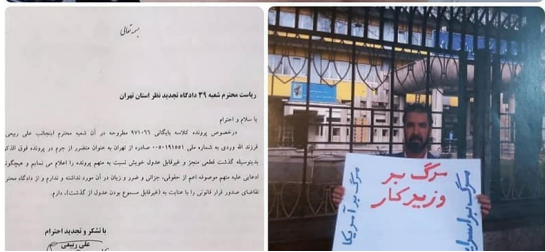 بسمه تعالی
ریاست محترم شعبه ۳۹ دادگاه تجدید نظر استان تهران
با سلام و احترام
درخصوص پرونده کلاسه بایگانی ۹۷۱۰۶۶ مطروحه در آن شعبه محترم اینجانب علی ربیعی
فرزند الله وردی به شماره ملی ۰۰۵۰۱۹۱۵۵۱ صادره از تهران به عنوان متضرر از جرم در پرونده فوق الذکر
بدینوسیله گذشت قطعی منجز و غیرقابل عدول خویش نسبت به متهم پرونده را اعلام می نمایم و هیچگونه
ادعایی علیه متهم موصوف اعم از حقوقی، جزائی و ضرر و زیان در آن مورد نداشته و ندارم و از دادگاه محترم
تقاضای صدور قرار قانونی را با عنایت به (غیرقابل مسموع بودن عدول از گذشت)، دارم.
با تشکر و تجدید احترام
علی ربیعی
مرگ بر
وزیر کار
مرگ بر آمریکا
مرگ بر اسرائیل